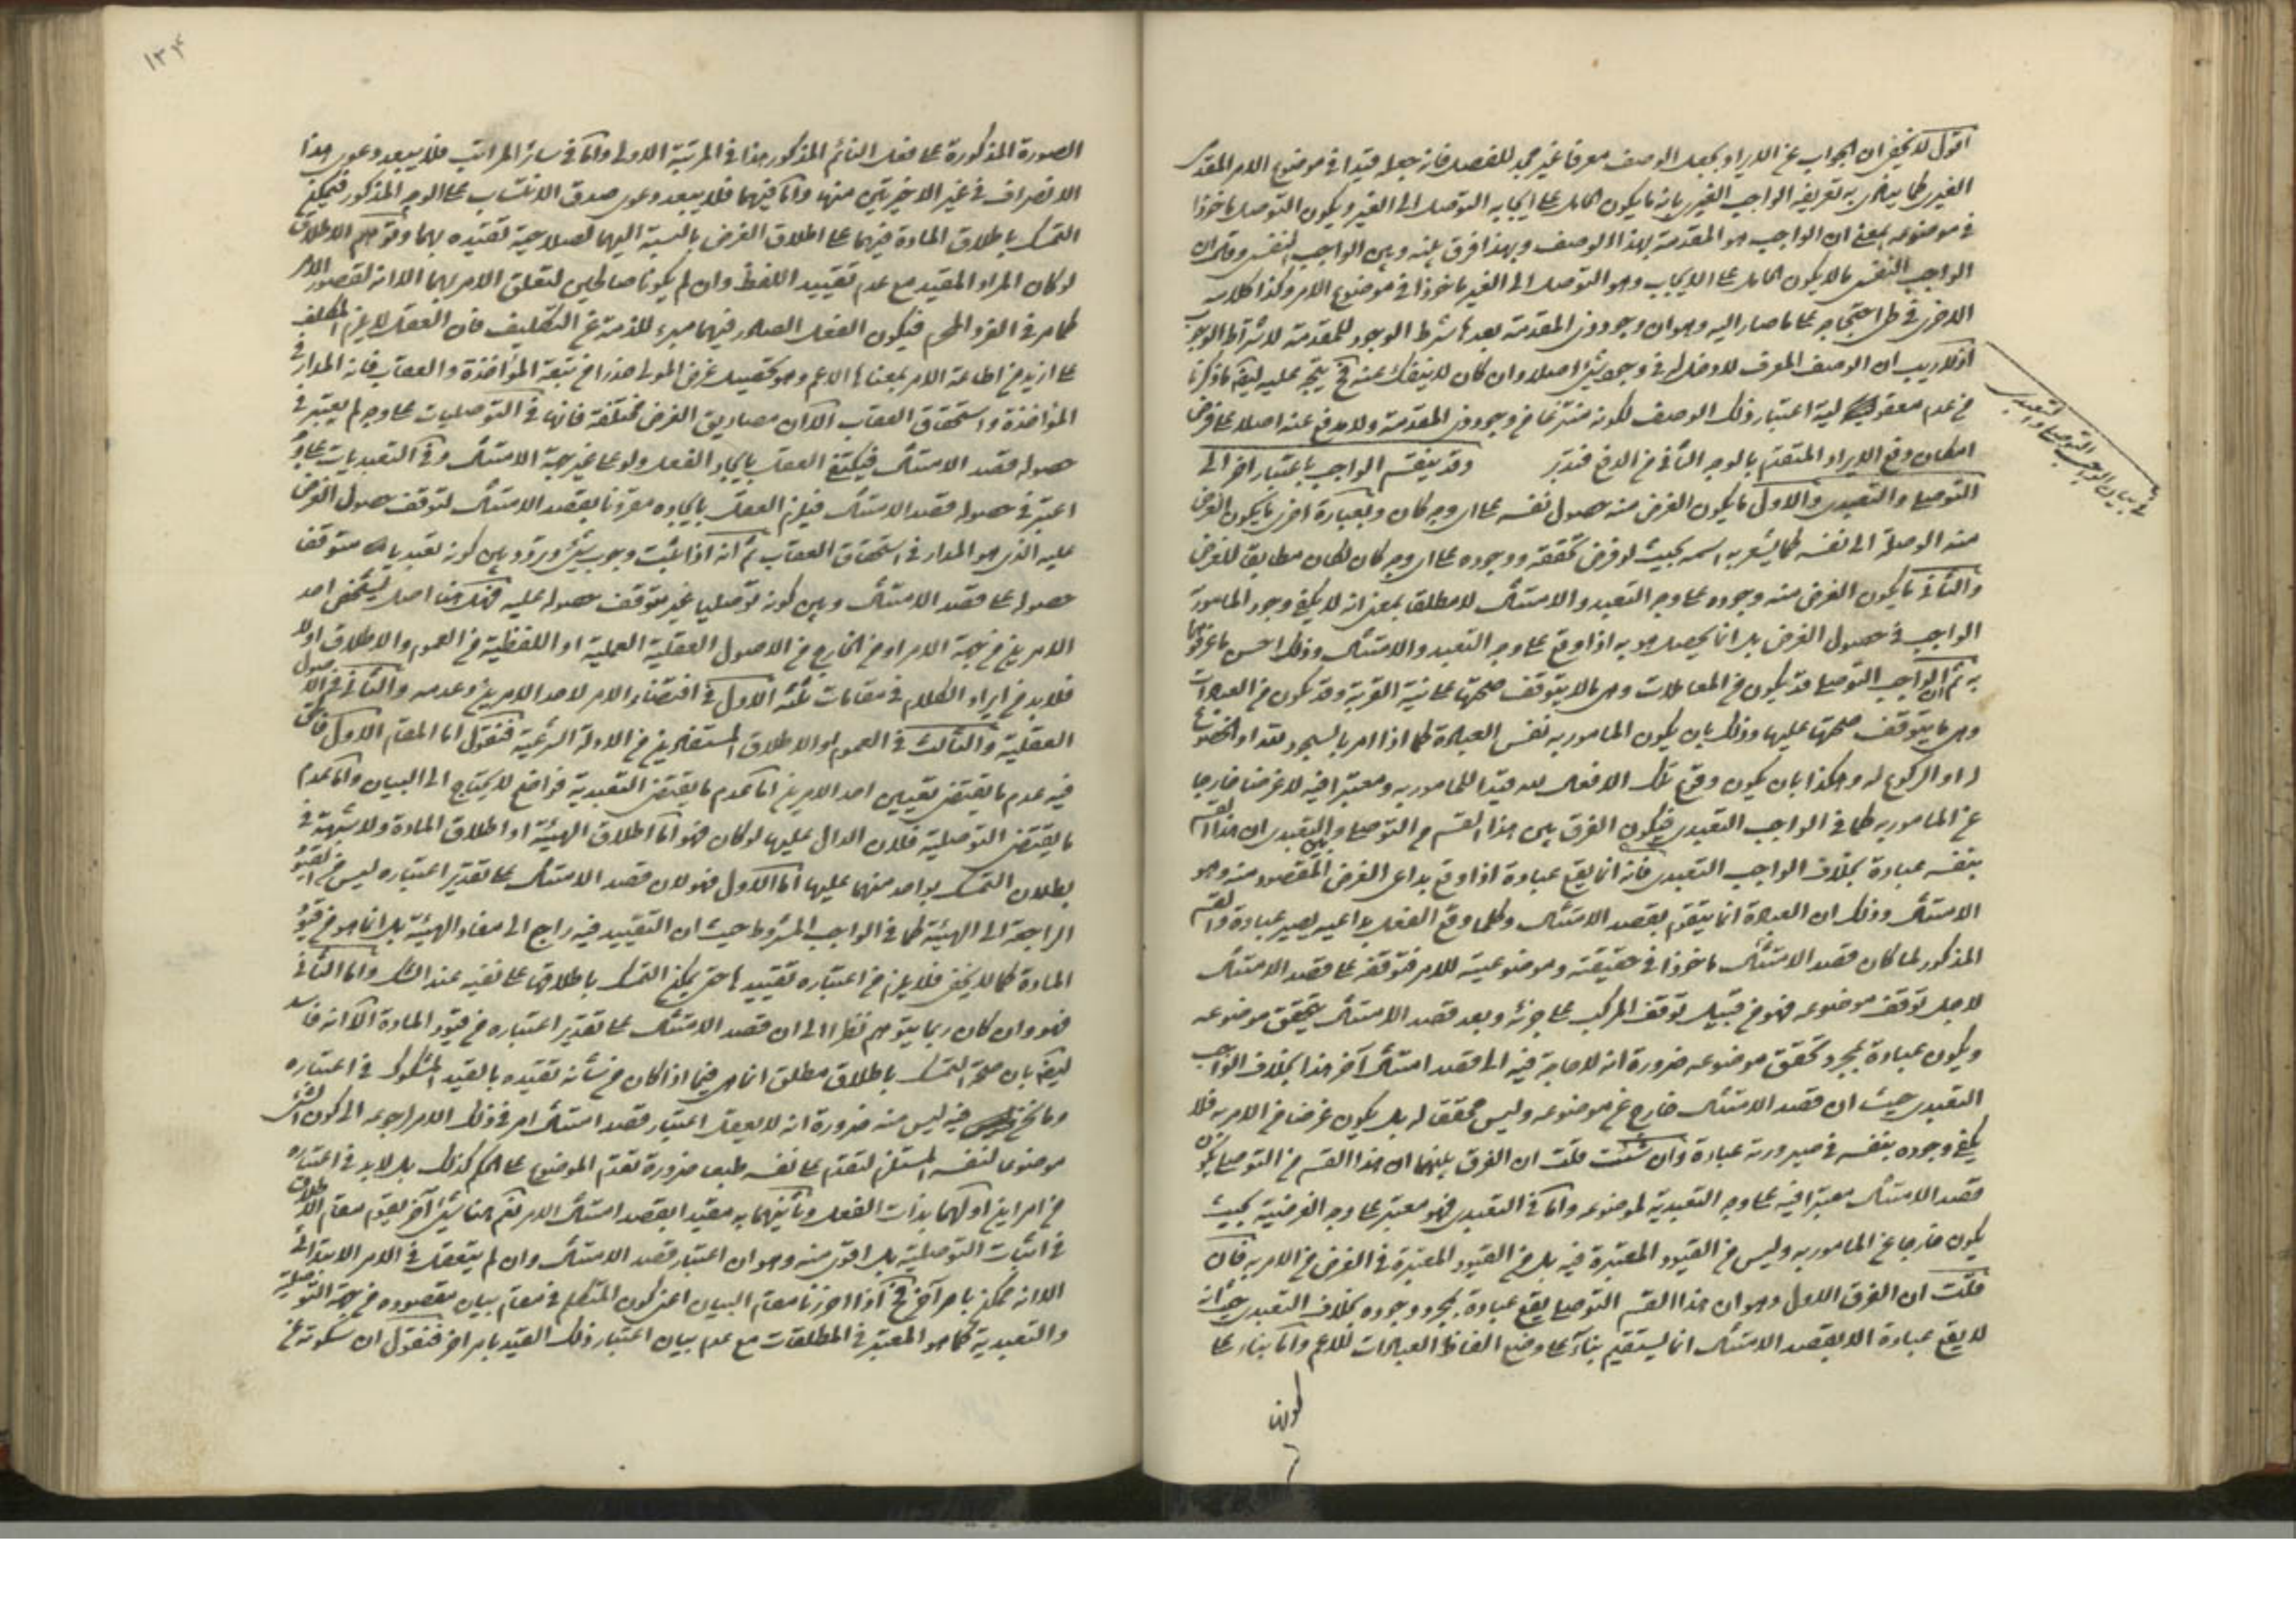 اقول لا يخفى ان الجواب عن الايراد بجعل الوصف معرفا غير مجد للفصل فانه جعله قيدا في موضوع الامر المقدمى
الغيرى كما ينادى به تعريفه الواجب الغيرى بانه ما يكون الحامل على ايجابه التوصل الى الغير ويكون التوصل ماخوذا
في موضوعه بمعنى ان الواجب هو المقدمة بهذا الوصف وبهذا فرق بينه وبين الواجب النفسى وقال ان
الواجب النفسى ما لا يكون الحامل على الايجاب وهو التوصل الى الغير ماخوذا في موضوع الامر وكذا كلامه
الاخرى في طى احتجاجه على ما صار اليه وهو ان وجود ذى المقدمة بعدها شرط الوجود للمقدمة لا شرط الوجوب
اذ لا ريب ان الوصف المعرف لا دخل له في وجوب شئ اصلا وان كان لا ينفك عنه فح يتجه عليه ايضا ما ذكرنا
من عدم معقولية اعتبار ذلك الوصف لكونه منتزعا من وجود ذى المقدمة ولا مدفع عنه اصلا على فرض
امكان دفع الايراد المتقدم بالوجه الثانى من الدفع فتدبر وقد ينقسم الواجب باعتبار اخر الى
التوصلى والتعبدى والاول ما يكون الغرض منه حصول نفسه على اى وجه كان وبعبارة اخرى ما يكون الغرض
منه الوصلة الى نفسه كما يشعر به اسمه بحيث لو فرض تحققه ووجوده على اى وجه كان لكان مطابقا للغرض
والثانى ما يكون الغرض منه وجوده على وجه التعبد والامتثال لا مطلقا بمعنى انه لا يكفى وجود المامور به
الواجب في حصول الغرض بل انما يحصل هو به اذا وقع على وجه التعبد والامتثال وذلك احسن ما عرفوهما
به ثم ان الواجب التوصلى قد يكون من المعاملات وهى ما لا يتوقف صحتها على نية القربة وقد يكون من العبادات
وهى ما يتوقف صحتها عليها وذلك بان يكون المامور به نفس العبادة كما اذا امر بالسجود لله او الخضوع
له او الركوع له وهكذا بان يكون وقوع تلك الافعال لله قيدا للمامور به ومعتبرا فيه لا غرضا خارجا
عن المامور به كما في الواجب التعبدى فيكون الفرق بين هذا القسم من التوصلى وبين التعبدى ان هذا القسم
بنفسه عبادة بخلاف الواجب التعبدى فانه انما يقع عبادة اذا وقع بداعى الغرض المقصود منه وهو
الامتثال وذلك ان العبادة انما يتقوم بقصد الامتثال وكلما وقع الفعل بداعيه يصير عبادة والقسم
المذكور لما كان قصد الامتثال ماخوذا في حقيقته وموضوعيته للامر فتوقفه على قصد الامتثال
لاجل توقف موضوعه فهو من قبيل توقف المركب على جزئه وبعد قصد الامتثال يتحقق موضوعه
ويكون عبادة بمجرد تحقق موضوعه ضرورة انه لا حاجة فيه الى قصد امتثال آخر هذا بخلاف الواجب
التعبدى حيث ان قصد الامتثال خارج عن موضوعه وليس محققا له بل يكون غرضا من الامر به فلا
يكفى وجوده بنفسه في صيرورته عبادة وان شئت قلت ان الفرق بينهما ان هذا القسم من التوصلى يكون
قصد الامتثال معتبرا فيه على وجه القيدية لموضوعه واما في التعبدى فهو معتبر على وجه الغرضية بحيث
يكون خارجا عن المامور به وليس من القيود المعتبرة فيه بل من القيود المعتبرة في الغرض من الامر به فان
قلت ان الفرق الاول وهو ان هذا القسم التوصلى يقع عبادة بمجرد وجوده بخلاف التعبدى حيث انه
لا يقع عبادة الا بقصد الامتثال انما يستقيم بناء على وضع الفاظ العبادات للاعم واما بناء على
كونها
في بيان الواجب التوصلى والتعبدى
١٣٤
الصورة المذكورة على فعل النائم المذكور هذا في المرتبة الاولى واما في سائر المراتب فلا يبعد دعوى هذا
الانصراف في غير الاخيرتين منها واما فيهما فلا يبعد دعوى صدق الانتساب على الوجه المذكور فيمكن
التمسك باطلاق المادة فيهما على اطلاق الغرض بالنسبة اليهما لصلاحية تقييده بهما وتوهم الاطلاق
لو كان المراد المقيد مع عدم تقييد اللفظ وان لم يكونا صالحين لتعلق الامر بهما الا انه لقصور الامر
كما مر في الفرد المحرم فيكون الفعل الصادر فيهما مبرء للذمة عن التكليف فان العقل لا يلزم المكلف
على ازيد من اطاعة الامر بمعناها الاعم وهو تحصيل غرض المولى حذرا من تبعة المؤاخذة والعقاب فانه المدار في
المؤاخذة واستحقاق العقاب الا ان مصاديق الغرض مختلفة فانها في التوصليات على وجه لم يعتبر في
حصوله قصد الامتثال فيكتفى العقل بايجاد الفعل ولو على غير جهة الامتثال وفي التعبديات على وجه
اعتبر في حصوله قصد الامتثال فيلزم العقل بايجاده مقرونا بقصد الامتثال لتوقف حصول الغرض
عليه الذى هو المدار في استحقاق العقاب ثم انه اذا ثبت وجوب شئ وتردد بين كونه تعبديا متوقف
حصوله على قصد الامتثال وبين كونه توصليا غير متوقف حصوله عليه فهل هنا اصل يشخص احد
الامرين من جهة الامر او من الخارج من الاصول العقلية العملية او اللفظية من العموم والاطلاق اولا
فلا بد من ايراد الكلام في مقامات ثلثة الاول في اقتضاء الامر لاحد الامرين وعدمه والثانى في الاصول
العقلية والثالث في العموم او الاطلاق المستفادين من الادلة الشرعية فنقول اما المقام الاول فالحق
فيه عدم ما يقتضى تعيين احد الامرين اما عدم ما يقتضى التعبدية فواضح لا يحتاج الى البيان واما عدم
ما يقتضى التوصلية فلان الدال عليها لو كان فهو اما اطلاق الهيئة او اطلاق المادة ولا شبهة في
بطلان التمسك بواحد منهما عليها اما الاول فهو لان قصد الامتثال على تقدير اعتباره ليس من القيود
الراجعة الى الهيئة كما في الواجب المشروط حيث ان التقييد فيه راجع الى مفاد الهيئة بل انما هو من قيود
المادة كما لا يخفى فلا يلزم من اعتباره تقييدها حتى يمكن التمسك باطلاقها على نفيه عند الشك واما الثانى
فهو وان كان ربما يتوهم نظرا الى ان قصد الامتثال على تقدير اعتباره من قيود المادة الا انه فاسد
ايضا بان صحة التمسك باطلاق مطلق انما هى فيما اذا كان من شأنه تقييده بالقيد المشكوك في اعتباره
وما نحن فيه ليس منه ضرورة انه لا يعقل اعتبار قصد امتثال امر في ذلك الامر لرجوعه الى كون الشئ
موضوعا لنفسه المستلزم لتقدم على نفسه طبعا ضرورة تقدم الموضوع على الحكم كذلك بل لا بد في اعتباره
من امرين اولهما بذات الفعل وثانيهما به مقيدا بقصد امتثال الامر نعم هنا شئ آخر يقوم مقام الاطلاق
في اثبات التوصلية بل اقوى منه وهو ان اعتبار قصد الامتثال وان لم يتعقل في الامر الابتدائى
الا انه ممكن بامر آخر فح اذا احرزنا مقام البيان اعنى كون المتكلم في مقام بيان مقصوده من جهة التوصلية
والتعبدية كما هو المعتبر في المطلقات مع عدم بيان اعتبار ذلك القيد بامر اخر فنقول ان سكوته عن